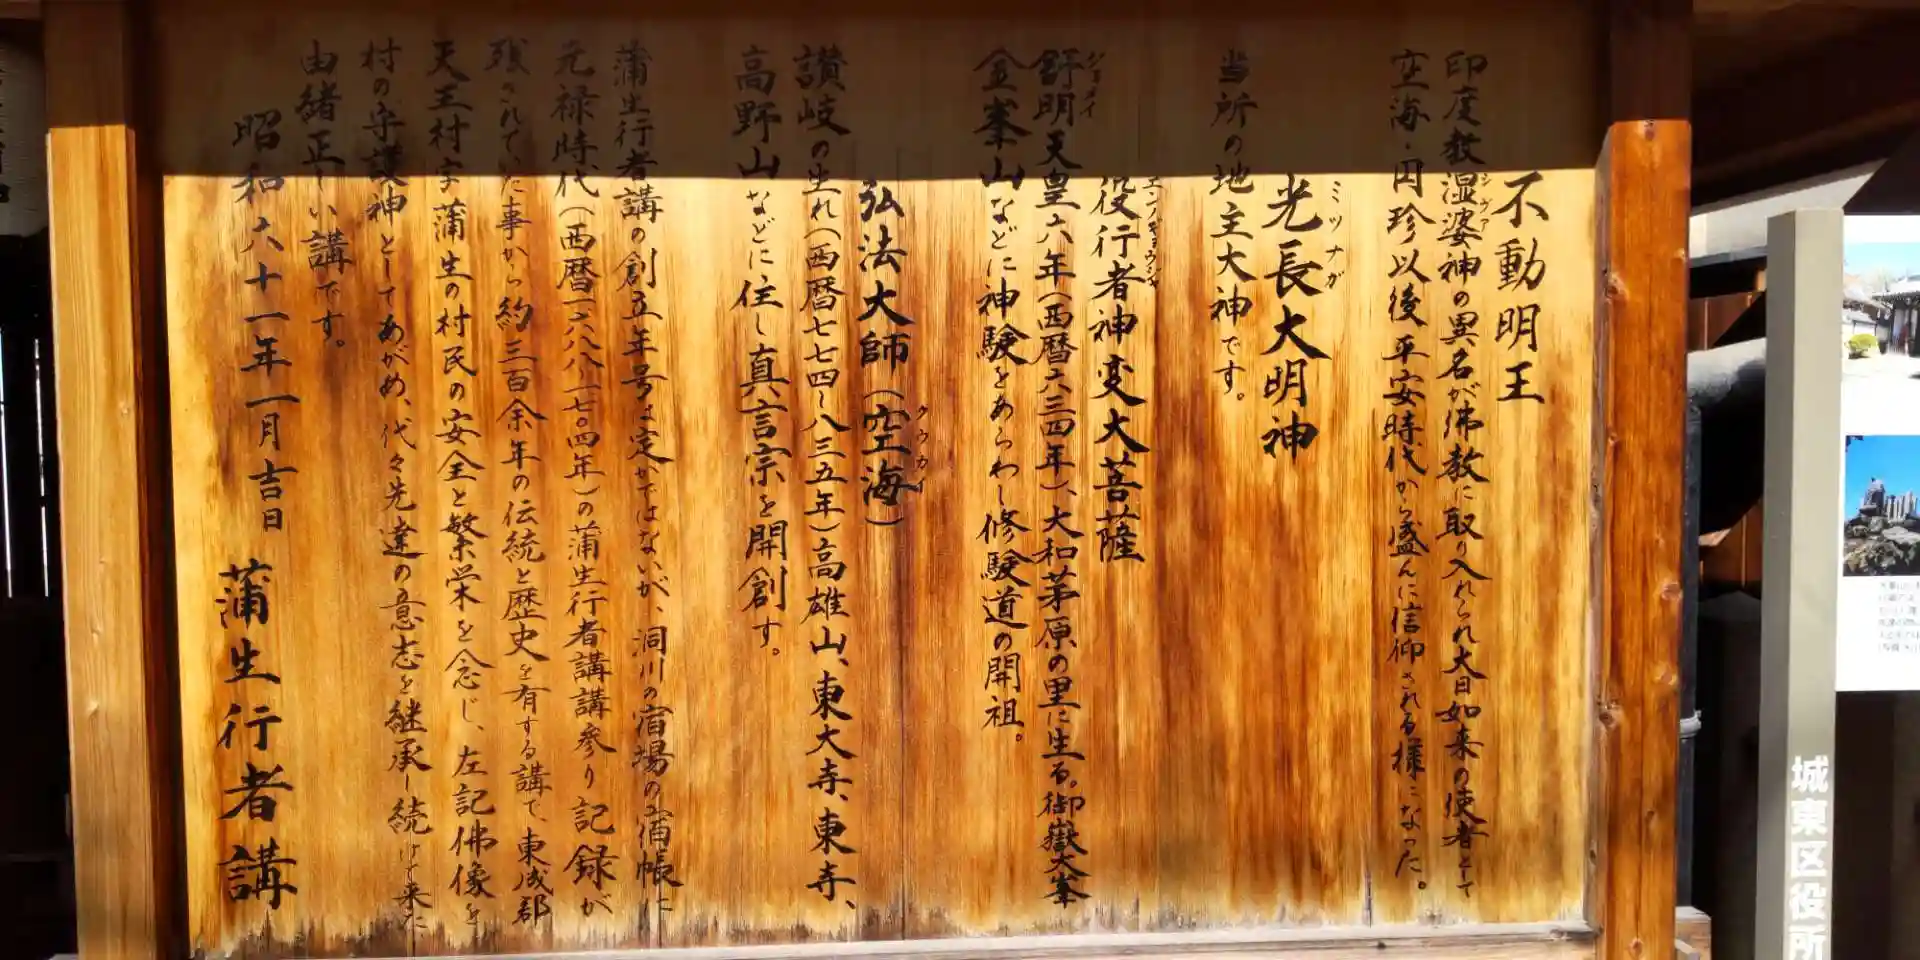 不動明王
印度教湿婆神の異名が佛教に取り入れられ大日如来の使者として
シヴァ
空海・円珍以後平安時代から盛んに信仰される様になった。
光長大明神
ミツナガ
当所の地主大神です。
役行者神変大菩薩
エンノギョウジャ
舒明天皇六年(西暦六三四年)、大和茅原の里に生る。御嶽大峯
ジョメイ
金峯山などに神験をあらわし修験道の開祖。
弘法大師(空海)
クウカイ
讃岐の生れ(西暦七七四〜八三五年)高雄山、東大寺、東寺、
高野山などに住し真言宗を開創す。
蒲生行者講の創立年号は定かではないが、洞川の宿場の宿帳に
元禄時代(西暦一六八八〜一七〇四年)の蒲生行者講講参り記録が
残されていた事から約三百余年の伝統と歴史を有する講で、東成郡
天王村字蒲生の村民の安全と繁栄を念じ、左記佛像を
村の守護神としてあがめ、代々先達の意志を継承し続けて来た
由緒正しい講です。
昭和六十一年一月吉日
蒲生行者講
城東区役所